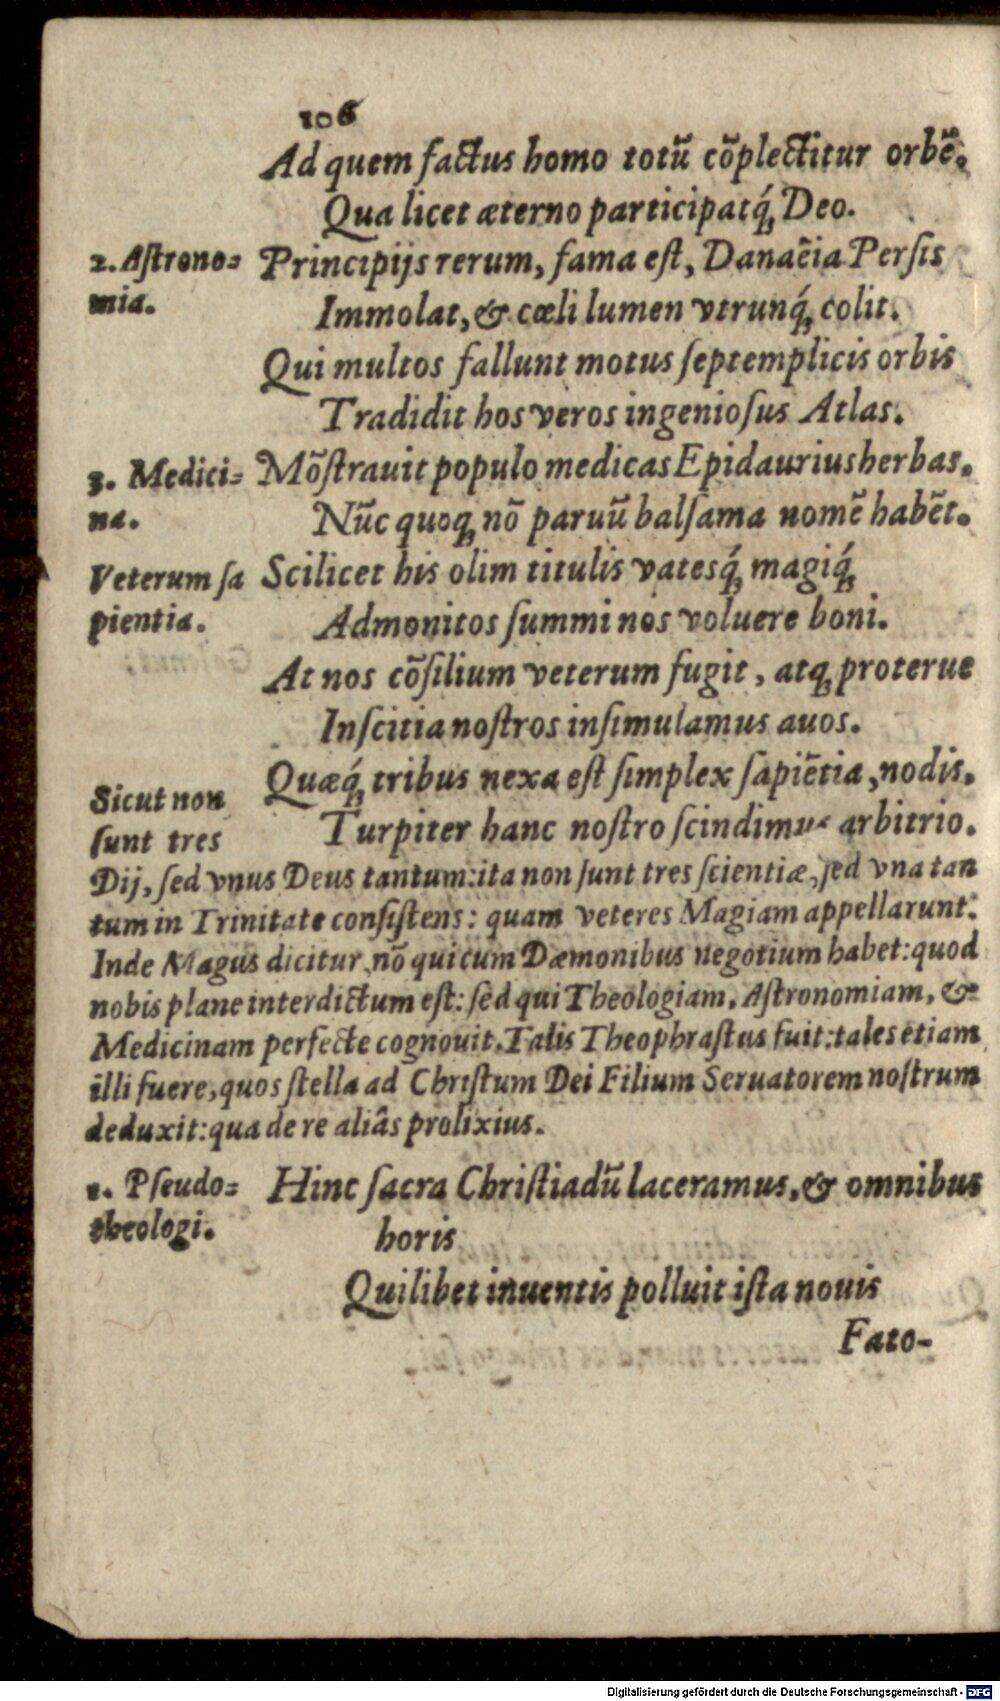 106
Ad quem factus homo totũ cõplectitur orbẽ,
Qua licet æterno participatq́; Deo.
2. Astrono=
mia.
Principijs rerum, fama est, Danaëia Persis
Immolat, & cœli lumen vtrunq́; colit.
Qui multos fallunt motus septemplicis orbis
Tradidit hos veros ingeniosus Atlas.
3. Medici=
na.
Mõstrauit populo medicas Epidaurius herbas.
Nũc quoq; nõ paruũ balsama nomẽ habẽt.
Veterum sa
pientia.
Scilicet his olim titulis vatesq́; magiq́;
Admonitos summi nos voluere boni.
At nos cõsilium veterum fugit, atq; proterue
Inscitia nostros insimulamus auos.
Quæq́; tribus nexa est simplex sapiẽtia, nodis.
Turpiter hanc nostro scindimus arbitrio.
Sicut non
sunt tres
Dij, sed vnus Deus tantum: ita non sunt tres scientiæ, sed vna tan
tum in Trinitate consistens: quam veteres Magiam appellarunt.
Inde Magus dicitur, nõ qui cum Dæmonibus negotium habet: quod
nobis plane interdictum est: sed qui Theologiam, Astronomiam, &
Medicinam perfecte cognouit. Talis Theophrastus fuit: tales etiam
illi fuere, quos stella ad Christum Dei Filium Seruatorem nostrum
deduxit: qua de re aliâs prolixius.
1. Pseudo=
theologi.
Hinc sacra Christiadũ laceramus, & omnibus
horis
Quilibet inuentis polluit ista nouis
Fato-
Digitalisierung gefördert durch die Deutsche Forschungsgemeinschaft - DFG